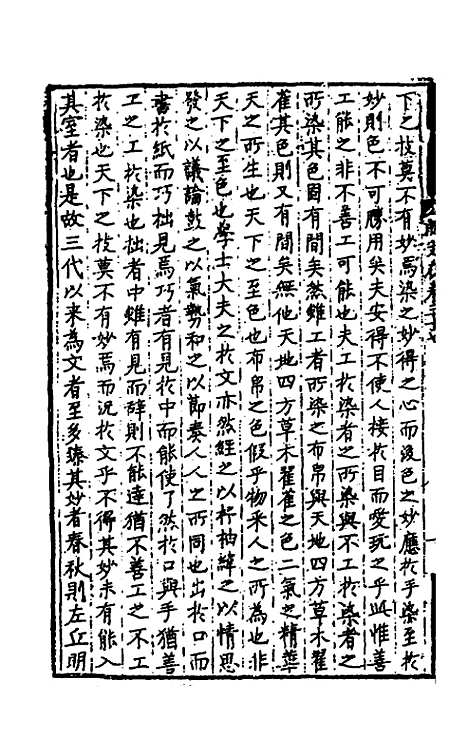 下之技莫不有妙焉染之妙得之心而後色之妙應於手染至於
妙則色不可勝用矣夫安得不使人接於目而愛玩之乎此惟善
工能之非不善工可能也夫工於染者之所染與不工於染者之
所染其色固有間矣然雖工者所染之布帛與天地四方草木翟
雀其色則又有間矣無他天地四方草木翟雀之色二氣之精華
天之所生也天下之至色也布帛之色假乎物采人之所為也非
天下之至色也學士大夫之於文亦然經之以杼柚緯之以情思
發之以議論鼓之以氣勢和之以節奏人人之所同也出於口而
書於紙而巧拙見焉巧者有見於中而能使了然於口與手猶善
工之工於染也拙者中雖有見而辭則不能達猶不善工之不工
於染也天下之技莫不有妙焉而況於文乎不得其妙未有能入
其室者也是故三代以來為文者至多臻其妙者春秋則左丘明